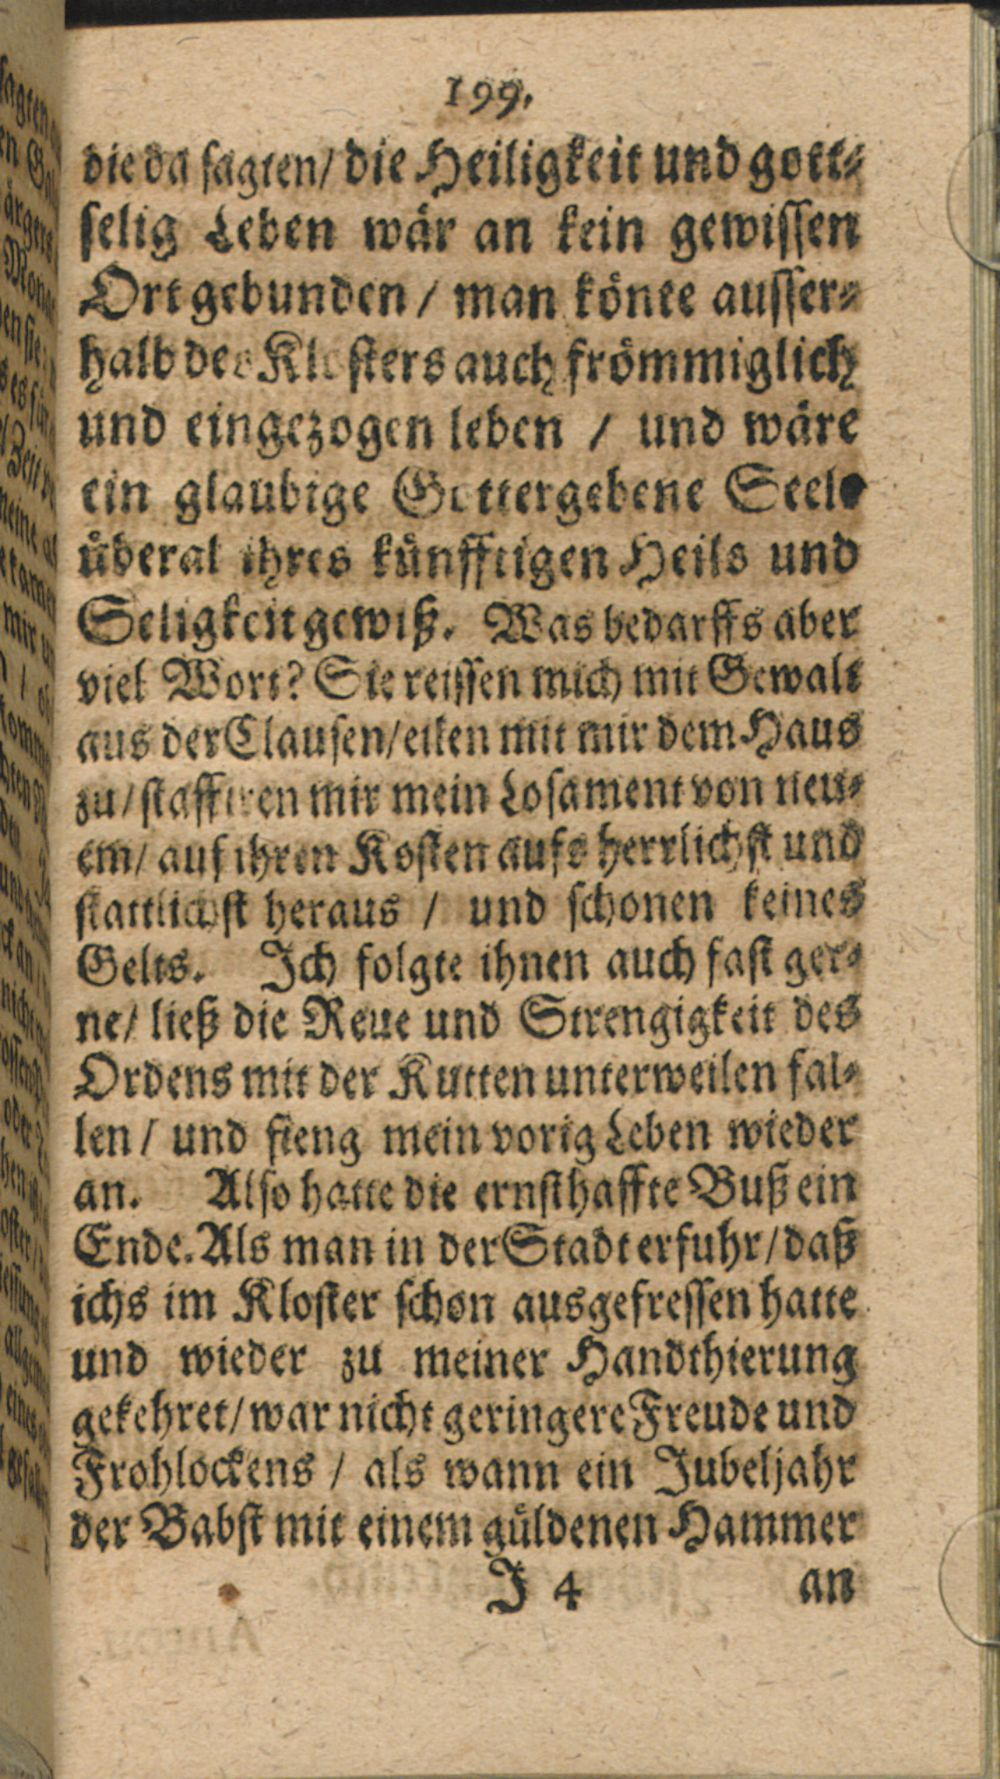 199.
die da sagten/ die Heiligkeit und gott-
selig Leben wår an kein gewissen
Ort gebunden / man könte ausser-
halb des Klosters auch frömmiglich
und eingezogen leben / und wäre
ein glaubige Gottergebene Seele
überal ihres künfftigen Heils und
Seligkeit gewiß. Was bedarffs aber
viel Wort? Sie reissen mich mit Gewalt
aus der Clausen/ eilen mit mir dem Haus
zu/ staffiren mir mein Losament von neu-
em/ auf ihren Kosten aufs herrlichst und
stattlichst heraus / und schonen keines
Gelts. Ich folgte ihnen auch fast ger-
ne/ ließ die Reue und Strengigkeit des
Ordens mit der Kutten unterweilen fal-
len / und fieng mein vorig Leben wieder
an. Also hatte die ernsthaffte Buß ein
Ende. Als man in der Stadt erfuhr/ daß
ichs im Kloster schon ausgefressen hatte
und wieder zu meiner Handthierung
gekehret/ war nicht geringere Freude und
Frohlockens / als wann ein Jubeljahr
der Babst mit einem güldenen Hammer
J 4 an